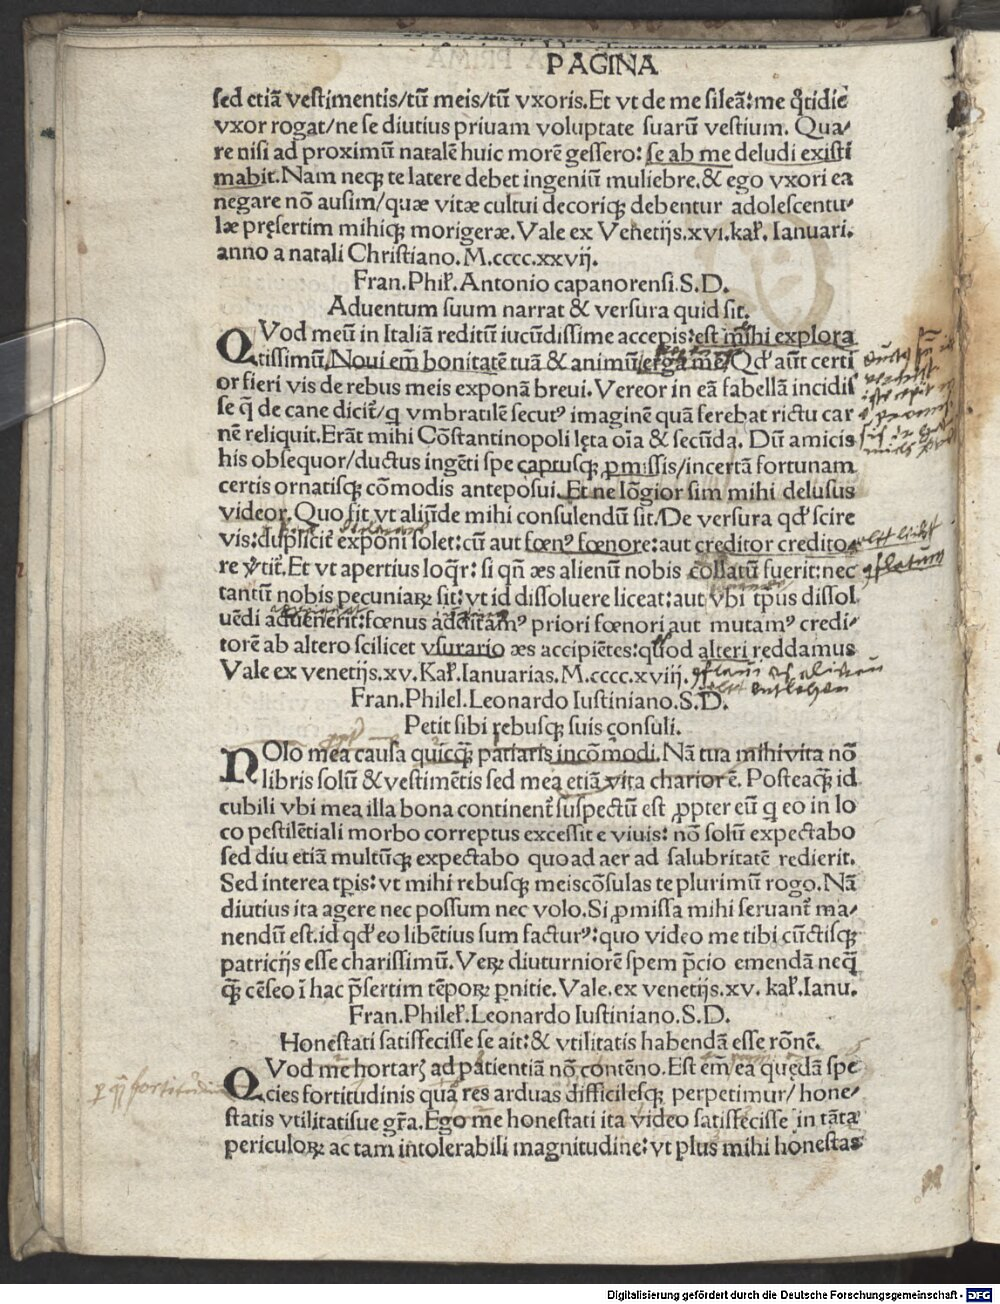 PAGINA
sed etiã vestimentis/tũ meis/tũ vxoris.Et vt de me sileã:me q̃tidie
vxor rogat/ne se diutius priuam voluptate suarũ vestium. Qua/
re nisi ad proximũ natalẽ huic morẽ gessero: se ab me deludi existi
mabit.Nam neqꝫ te latere debet ingeniũ muliebre.& ego vxori ea
negare nõ ausim/quæ vitæ cultui decoriqꝫ debentur adolescentu/
læ pręsertim mihiqꝫ morigeræ.Vale ex Venetijs.xvi.kaľ. Ianuari.
anno a natali Christiano.M.cccc.xxvij.
Fran.Phiľ.Antonio capanorensi.S.D.
Aduentum suum narrat & versura quid sit.
QVod meũ in Italiã reditũ iucũdissime accepis:est mihi explora
tissimũ/Noui em̃ bonitatẽ tuã & animũ/erga me/Qď aũt certi
or fieri vis de rebus meis exponã breui.Vereor in eã fabellã incidis
se q̃ de cane dicit̃/q vmbratilẽ secutꝰ imaginẽ quã ferebat rictu car
nẽ reliquit.Erãt mihi Cõstantinopoli lęta oĩa & secũda. Dũ amicis
his obsequor/ductus ingẽti spe captusqꝫ ꝓmissis/incertã fortunam
certis ornatisqꝫ cõmodis anteposui.Et ne lõgior sim mihi delusus
videor.Quo sit vt aliũde mihi consulendũ sit/De versura qď scire
vis:duplicit̃ exponi solet:cũ aut fœnꝰ fœnore:aut creditor credito
re v̓tit̃.Et vt apertius loq̃r: si qñ æs alienũ nobis collatũ fuerit:nec
tantũ nobis pecuniaꝝ sit:vt id dissoluere liceat:aut vbi tp̃us dissol
uẽdi aduenerit:fœnus additamꝰ priori fœnori aut mutamꝰ credi/
torẽ ab altero scilicet vsurario æs accipiẽtes:quod alteri reddamus
Vale ex venetijs.xv.Kaľ.Ianuarias.M.cccc.xviij.
Fran.Philel.Leonardo Iustiniano.S.D.
Petit sibi rebusqꝫ suis consuli.
NOlo mea causa quicqꝫ patiaris incõmodi.Nã tua mihi vita nõ
libris solũ & vestimẽtis sed mea etiã vita charior ẽ. Posteaqꝫ id
cubili vbi mea illa bona continent̃ suspectũ est ꝓpter eũ q eo in lo
co pestilẽtiali morbo correptus excessit e viuis: nõ solũ expectabo
sed diu etiã multũqꝫ expectabo quoad aer ad salubritatẽ redierit.
Sed interea tp̃is:vt mihi rebusqꝫ meis cõsulas te plurimũ rogo.Nã
diutius ita agere nec possum nec volo.Si ꝓmissa mihi seruant̃ ma/
nendũ est.id qď eo libẽtius sum facturꝰ:quo video me tibi cũctisqꝫ
patricijs esse charissimũ.Veꝝ diuturniorẽ spem p̃cio emendã neq̃
qꝫ cẽseo ĩ hac p̃sertim tẽpoꝝ ꝑnitie.Vale.ex venetijs.xv. kaľ.Ianu.
Fran.Phileľ.Leonardo Iustiniano.S.D.
Honestati satisfecisse se ait:& vtilitatis habendã esse rõnẽ.
QVod me hortarꝭ ad patientiã nõ contẽno.Est em̃ ea quędã spe
cies fortitudinis qua res arduas difficilesqꝫ perpetimur/hone/
statis vtilitatisue gr̃a.Ego me honestati ita video satisfecisse in tãta
periculoꝝ ac tam intolerabili magnitudine:vt plus mihi honestas
Digitalisierung gefördert durch die Deutsche Forschungsgemeinschaft - DFG